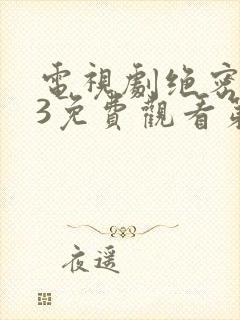 電視劇绝密
3免費觀看第
夜遥